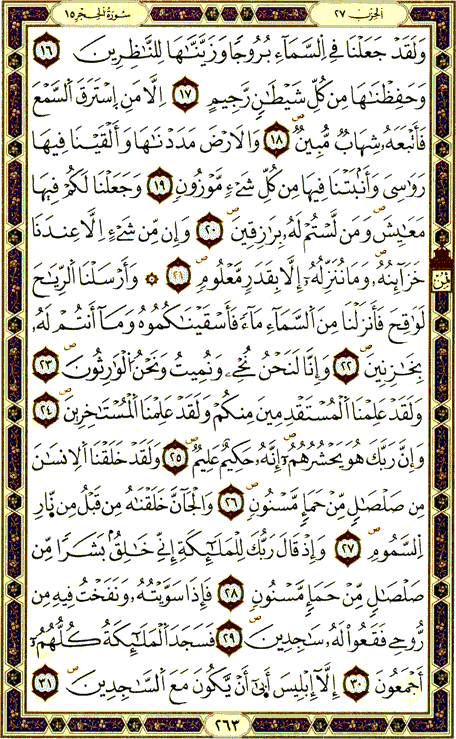 الحزب ٢٧
سورة الحجر ١٥
وَلَقَدْ جَعَلْنَا فِى السَّمَآءِ بُرُوجًا وَزَيَّنَّاهَا لِلنَّاظِرِينَ ١٦
وَحَفِظْنَاهَا مِن كُلِّ شَيْطَانٍ رَّجِيمٍ ١٧ إِلَّا مَنِ اسْتَرَقَ السَّمْعَ
فَأَتْبَعَهُ شِهَابٌ مُّبِينٌ ١٨ وَالْأَرْضَ مَدَدْنَاهَا وَأَلْقَيْنَا فِيهَا
رَوَاسِىَ وَأَنبَتْنَا فِيهَا مِن كُلِّ شَىْءٍ مَّوْزُونٍ ١٩ وَجَعَلْنَا لَكُمْ فِيهَا
مَعَايِشَ وَمَن لَّسْتُمْ لَهُ بِرَازِقِينَ ٢٠ وَإِن مِّن شَىْءٍ إِلَّا عِندَنَا
خَزَآئِنُهُ وَمَا نُنَزِّلُهُ إِلَّا بِقَدَرٍ مَّعْلُومٍ ٢١ وَأَرْسَلْنَا الرِّيَاحَ
لَوَاقِحَ فَأَنزَلْنَا مِنَ السَّمَآءِ مَآءً فَأَسْقَيْنَاكُمُوهُ وَمَآ أَنتُمْ لَهُ
بِخَازِنِينَ ٢٢ وَإِنَّا لَنَحْنُ نُحْىِ وَنُمِيتُ وَنَحْنُ الْوَارِثُونَ ٢٣
وَلَقَدْ عَلِمْنَا الْمُسْتَقْدِمِينَ مِنكُمْ وَلَقَدْ عَلِمْنَا الْمُسْتَأْخِرِينَ ٢٤
وَإِنَّ رَبَّكَ هُوَ يَحْشُرُهُمْ إِنَّهُ حَكِيمٌ عَلِيمٌ ٢٥ وَلَقَدْ خَلَقْنَا الْإِنسَانَ
مِن صَلْصَالٍ مِّنْ حَمَإٍ مَّسْنُونٍ ٢٦ وَالْجَآنَّ خَلَقْنَاهُ مِن قَبْلُ مِن نَّارِ
السَّمُومِ ٢٧ وَإِذْ قَالَ رَبُّكَ لِلْمَلَآئِكَةِ إِنِّى خَالِقٌ بَشَرًا مِّن
صَلْصَالٍ مِّنْ حَمَإٍ مَّسْنُونٍ ٢٨ فَإِذَا سَوَّيْتُهُ وَنَفَخْتُ فِيهِ مِن
رُّوحِى فَقَعُوا لَهُ سَاجِدِينَ ٢٩ فَسَجَدَ الْمَلَآئِكَةُ كُلُّهُمْ
أَجْمَعُونَ ٣٠ إِلَّآ إِبْلِيسَ أَبَىٰ أَن يَكُونَ مَعَ السَّاجِدِينَ ٣١
٢٦٣